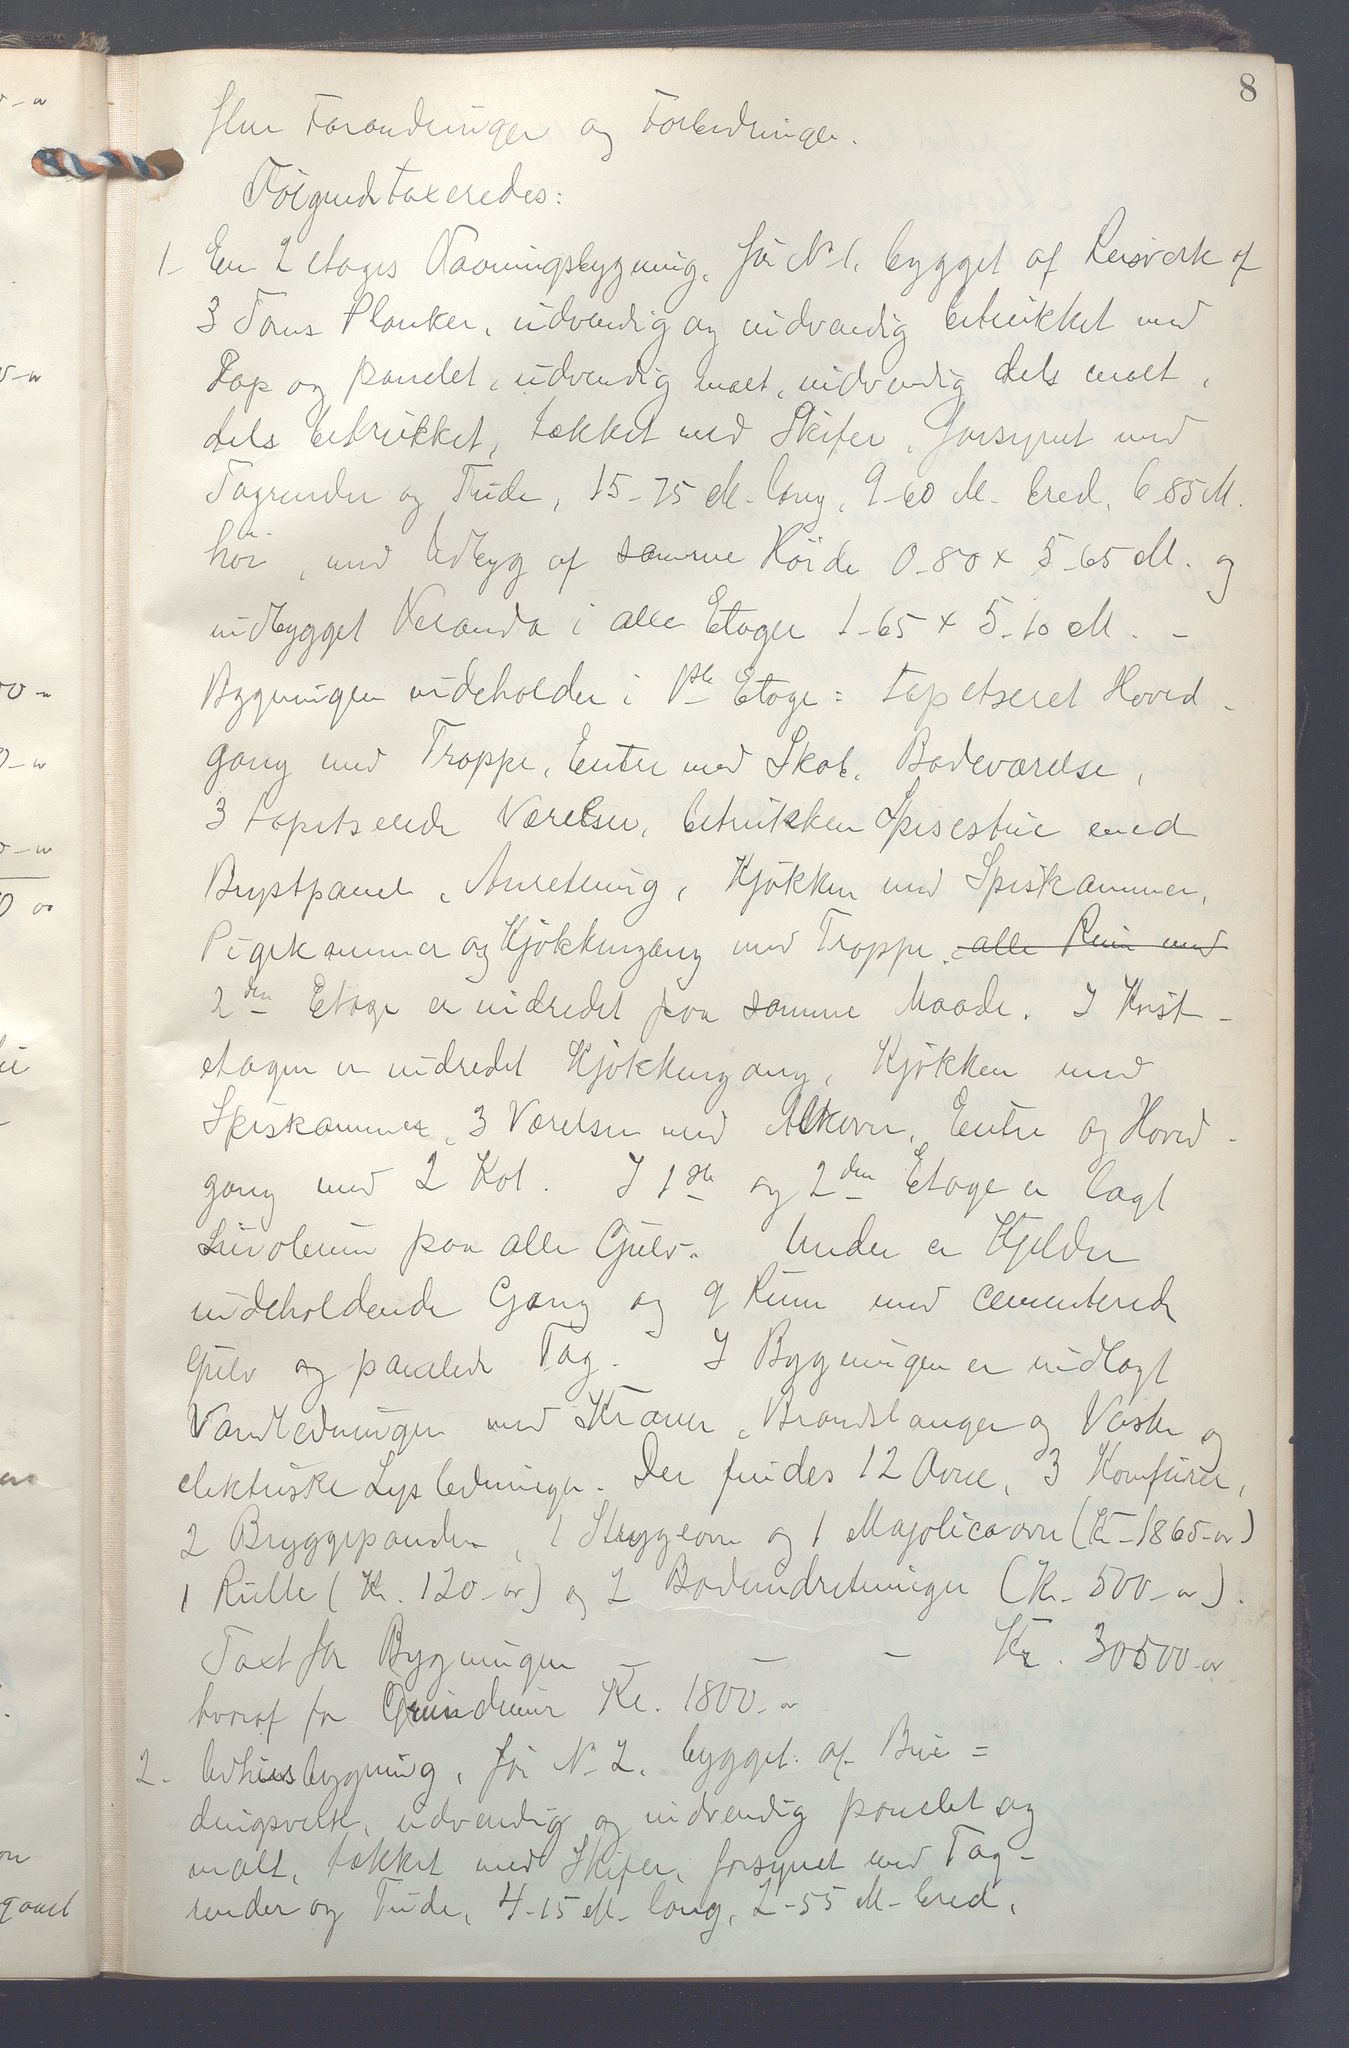 8
flere Forandringer og Forbedringer.
Følgende taxeredes:
1- En 2 etages Vaaningsbygning, før No 1, bygget af Reisverk af
3 Toms Planker, udvendig og indvendig betrukket med
Pap og panelet, udvendig malt, indvendig dels malt,
dels betrukket, tækket med Skifer, forsynet med
Tagrender og Tude, 15-75 M. lang, 9-60 M. bred, 6-85 M.
høi, med Udbyg af samme Høide 0-80 x 5-65 M. og
indbygget Veranda i alle Etager 1-65 x 5-10 M. -
Bygningen indeholder i 1ste Etage: tapetseret Hoved-
gang med Trappe, Entre med Skab, Badeværelse,
3 tapetserede Værelser, betrukken Spisestue med
Brystpanel, Anretning, Kjøkken med Spiskammer,
Pigekammer og Kjøkkengang med Trappe. alle Rum med
2den Etage er indredet paa samme Maade. I Kvist-
etagen er indredet Kjøkkengang, Kjøkken med
Spiskammer, 3 Værelser med Alkover, Entre og Hoved-
gang med 2 Kot. I 1ste og 2den Etage er lagt
Linoleum paa alle Gulv. Under er Kjelder
indeholdende Gang og 9 Rum med cementerede
Gulv og panelede Tag. I Bygningen er indlagt
Vandledninger med Kraner, Brandslanger og Vaske og
elektriske Lysledninger. Der findes 12 Ovne, 3 Komfurer,
2 Bryggepander, 1 Strygeovn og 1 Majolicaovn (Kr. 1865-00)
1 Rulle (Kr. 120-00) og 2 Badeindretninger (Kr. 500-00).
Taxt for Bygningen - - - Kr. 30500-00
hvoraf for Grundmur Kr. 1800-00
2- Udhusbygning, før No 2, bygget af Bin=
dingsverk, udvendig og indvendig panelet og
malt, tækket med Skifer, forsynet med Tag-
render og Tude, 4-15 M. lang, 2-55 M. bred,